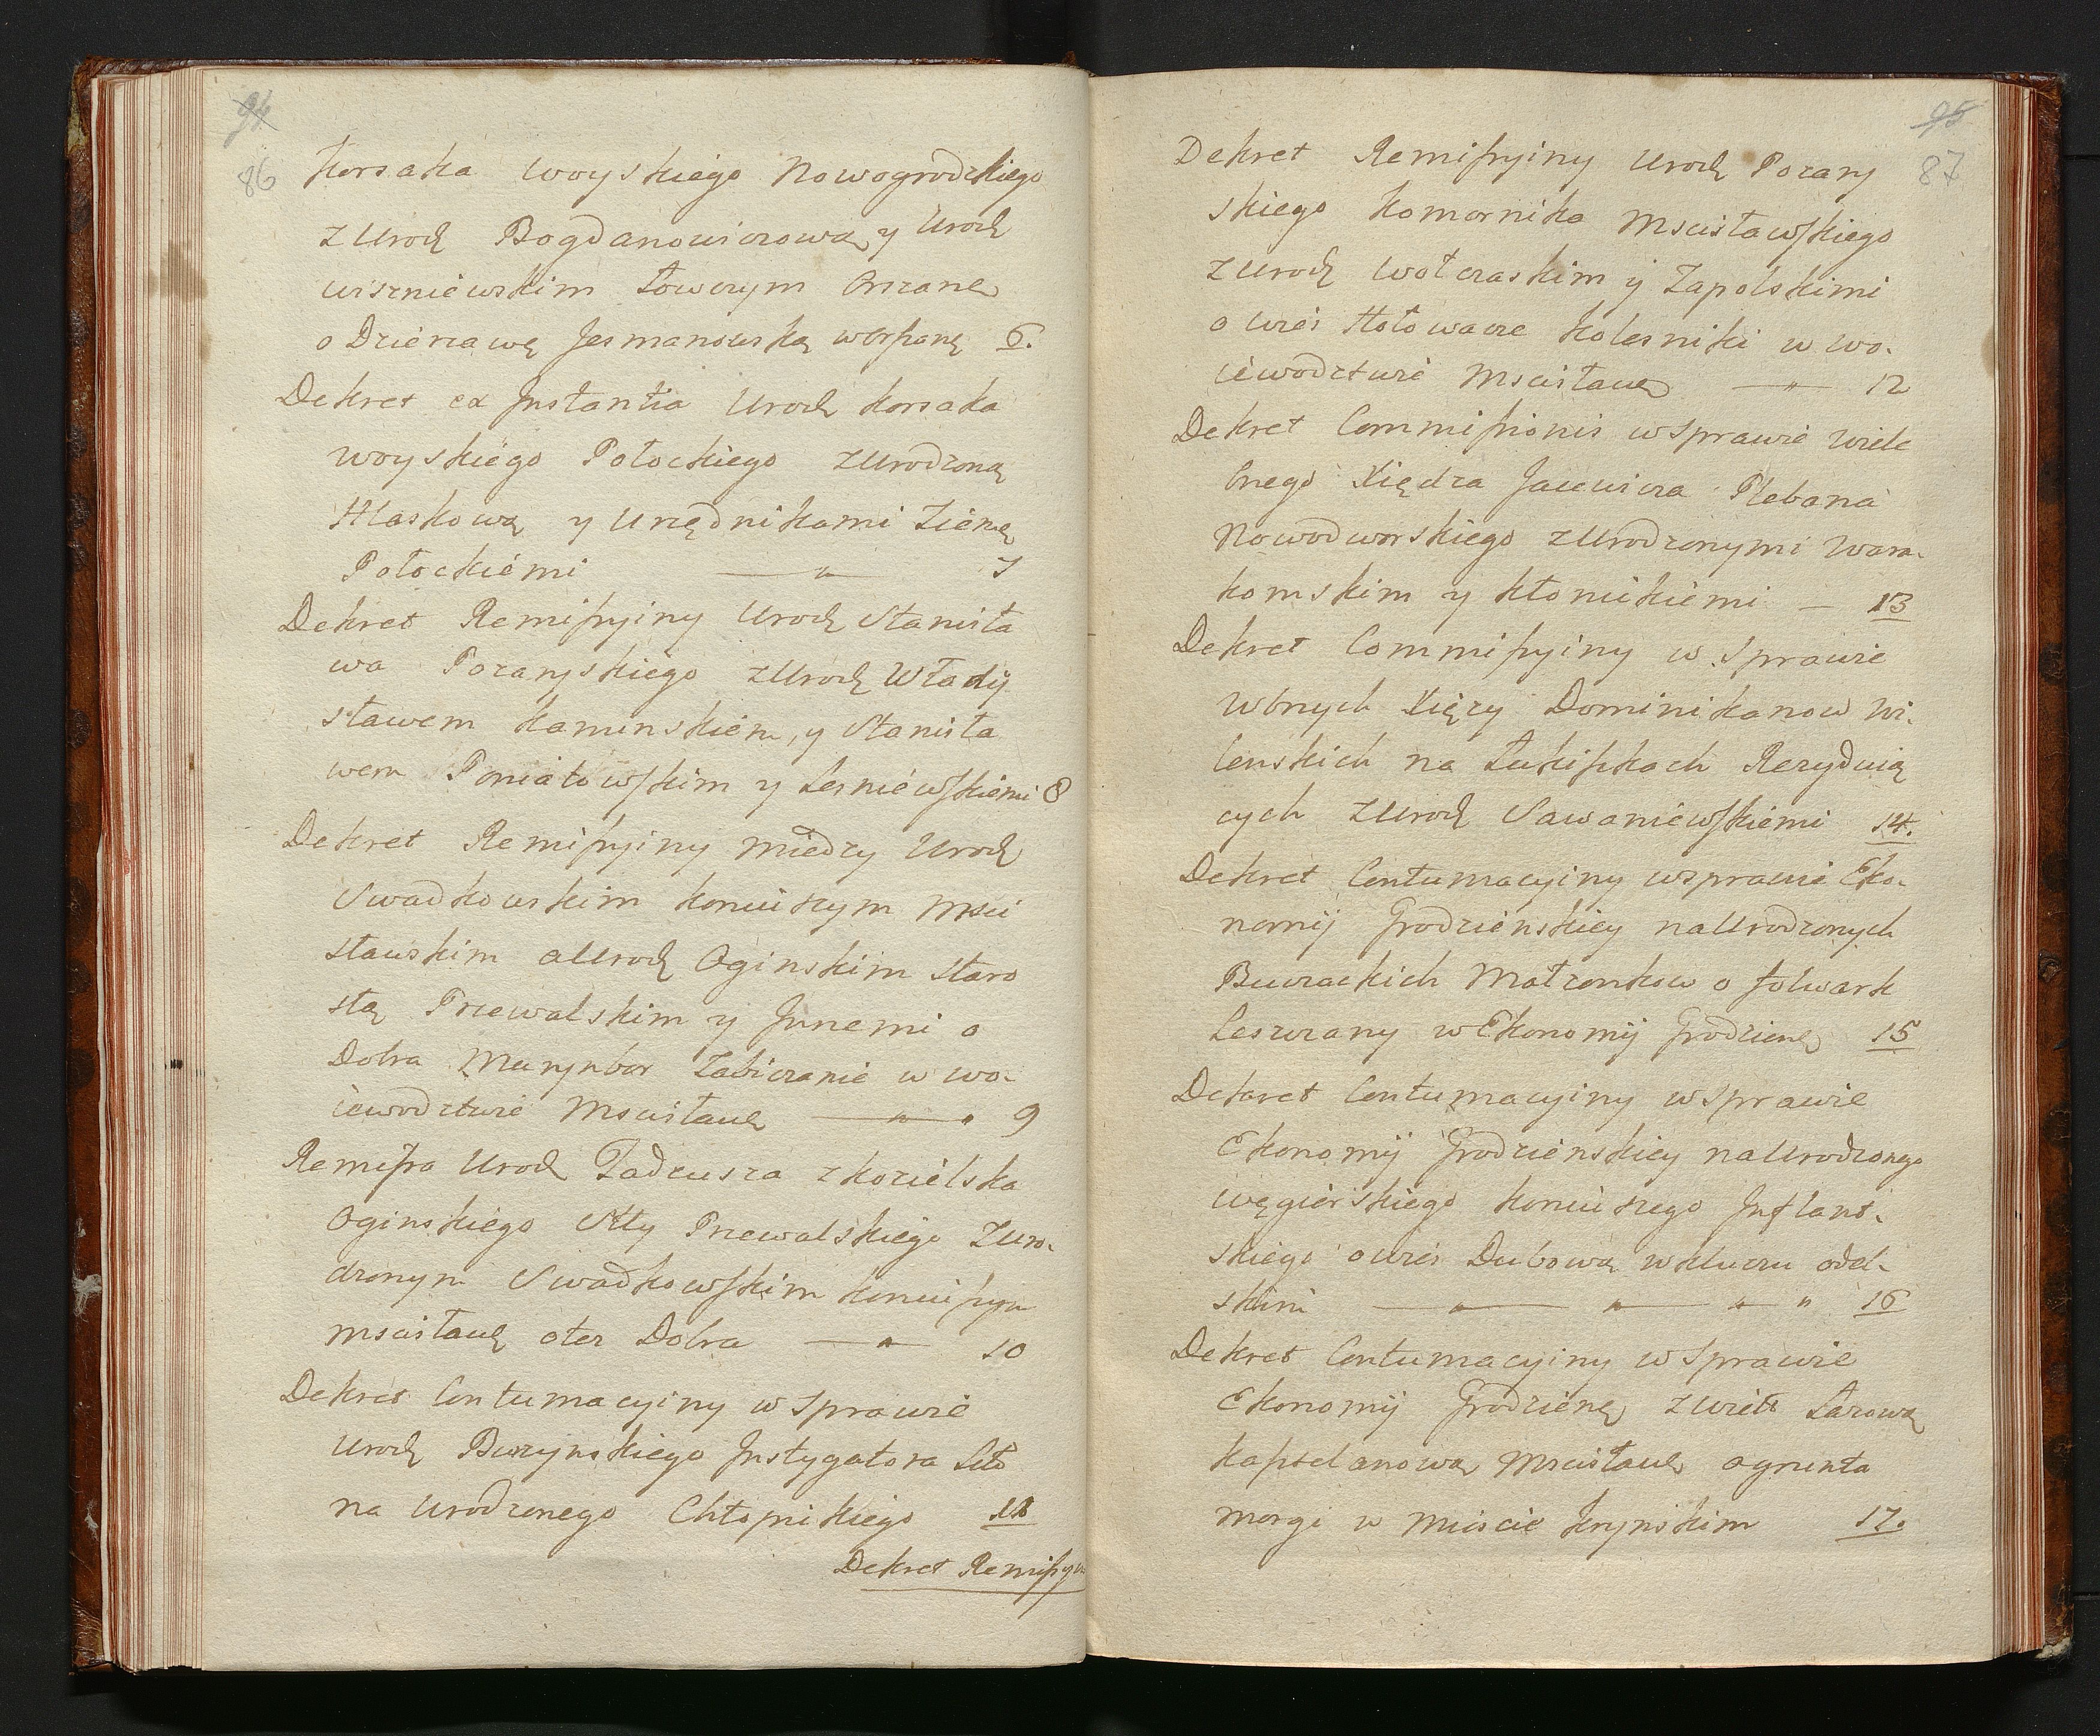 94
86
Korsaka Woyskiego Nowogrodzkiego
z Urodz Bogdanowiczową y Urodz
Wiszniewskim Łowczym Orszane
o Dzierzawę Jesmanowską w Orszanę 6.
Dekret ex Instantia Urodz Korsaka
Woyskiego Połockiego z Urodzoną
Hłaskową y Urzędnikami Ziemę
Połockiemi — " — 7
Dekret Remissyiny Urodz Stanisła
wa Pozaryskiego z Urodz Włady
sławem Kaminskiem, y Stanisła
wem Poniatowskim y Lesniewskiemi 8
Dekret Remissyiny miedzy Urodz
Swadkowskim Koniuszym Msci
sławskim a Urodz Oginskim Staro
stą Przewalskim y Jnnemi o
Dobra Murynbor Zabiczanie w Wo-
iewodztwie Mscisławę — " — " 9
Remissa Urodz Tadeusza z Kozielska
Oginskiego Stty Przewalskiego z Uro-
dzonym Swadkowskim Koniuszym
Mscisławę o też Dobra — " — 10
Dekret Contumacyiny w Sprawie
Urodz Burzynskiego Jnstygatora Litt
na Urodzonego Chłopickiego 11
Dekret Remissyin
95
87
Dekret Remissyiny Urodz Pozary
skiego Komornika Mscisławskiego
z Urodz Wołczaskim y Zapolskimi
o wieś Hołowacze Kolesniki w Wo-
iewodztwie Mscisławę — " — 12
Dekret Commissionis w Sprawie Wiele
bnego Xiędza Jacewicza Plebana
Nowodworskiego z Urodzonymi Wara-
komskim y Kłonickiemi — 13
Dekret Commissyiny w Sprawie
Wbnych Xięży Dominikanow Wi-
lenskich na Łukiszkach Rezyduią
cych z Urodz Sawaniewskiemi 14.
Dekret Contumacyiny w sprawie Eko-
nomij Grodzienskiey na Urodzonych
Buczackich Małzonkow o folwark
Leszczany w Ekonomij Grodzienę 15
Dekret Contumacyiny w Sprawie
Ekonomij Grodzienskiey na Urodzonego
Węgierskiego Koniuszego Jnflant-
skiego o wieś Dubową w Kluczu odel-
skim — " — " — " " 16
Dekret Contumacyiny w Sprawie
Ekonomij Grodzienę z Wielb Łazową
Kasztelanową Mscisławę o grunta
morgi w Miescie Krynskim 17.